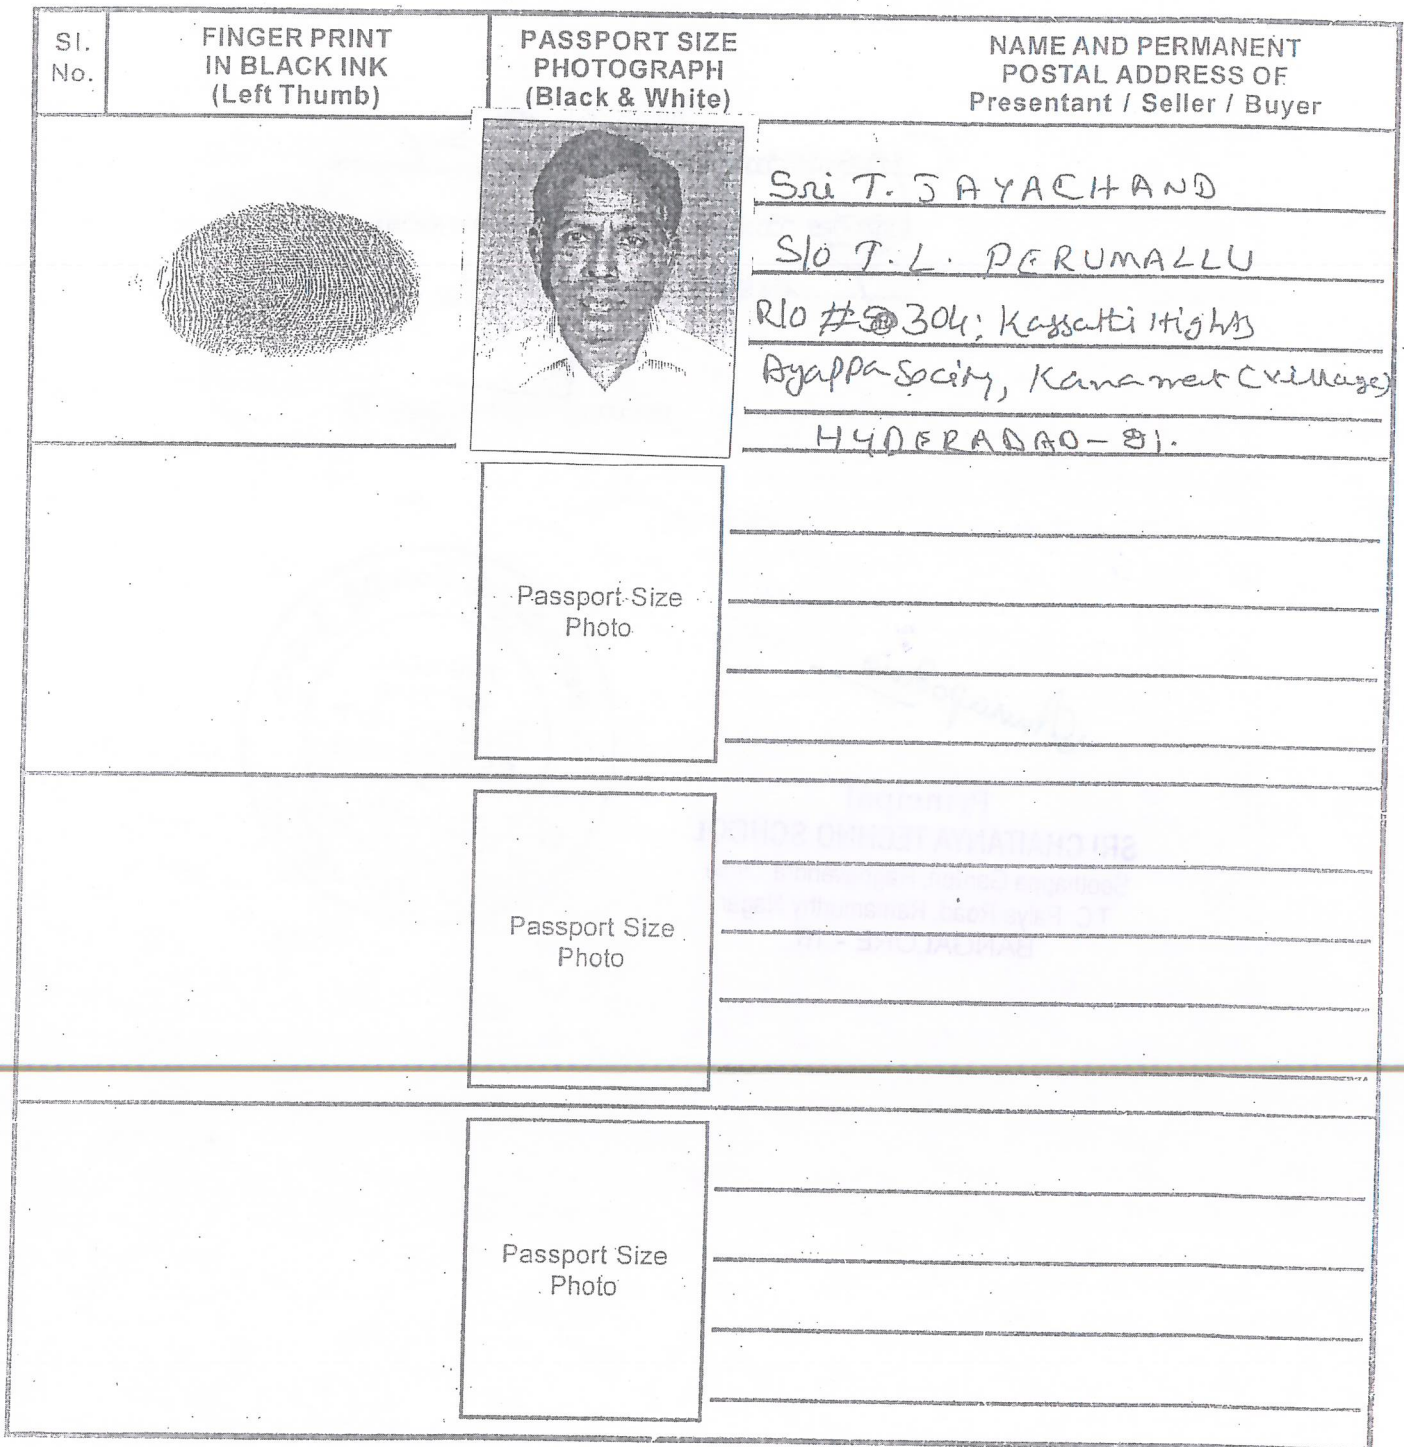 Sl.
No.
FINGER PRINT
IN BLACK INK
(Left Thumb)
PASSPORT SIZE
PHOTOGRAPH
(Black & White)
NAME AND PERMANENT
POSTAL ADDRESS OF
Presentant / Seller / Buyer
Sri T. JAYACHAND
S/o T. L. PERUMALLU
R/o # 304; Kassatti Hights
Ayappa Socity, Kanamet (village)
HYDERABAD - 81.
Passport Size
Photo
Principal
SRI CHAITANYA TECHNO SCHOOL
BANGALORE -
Passport Size
Photo
Passport Size
Photo